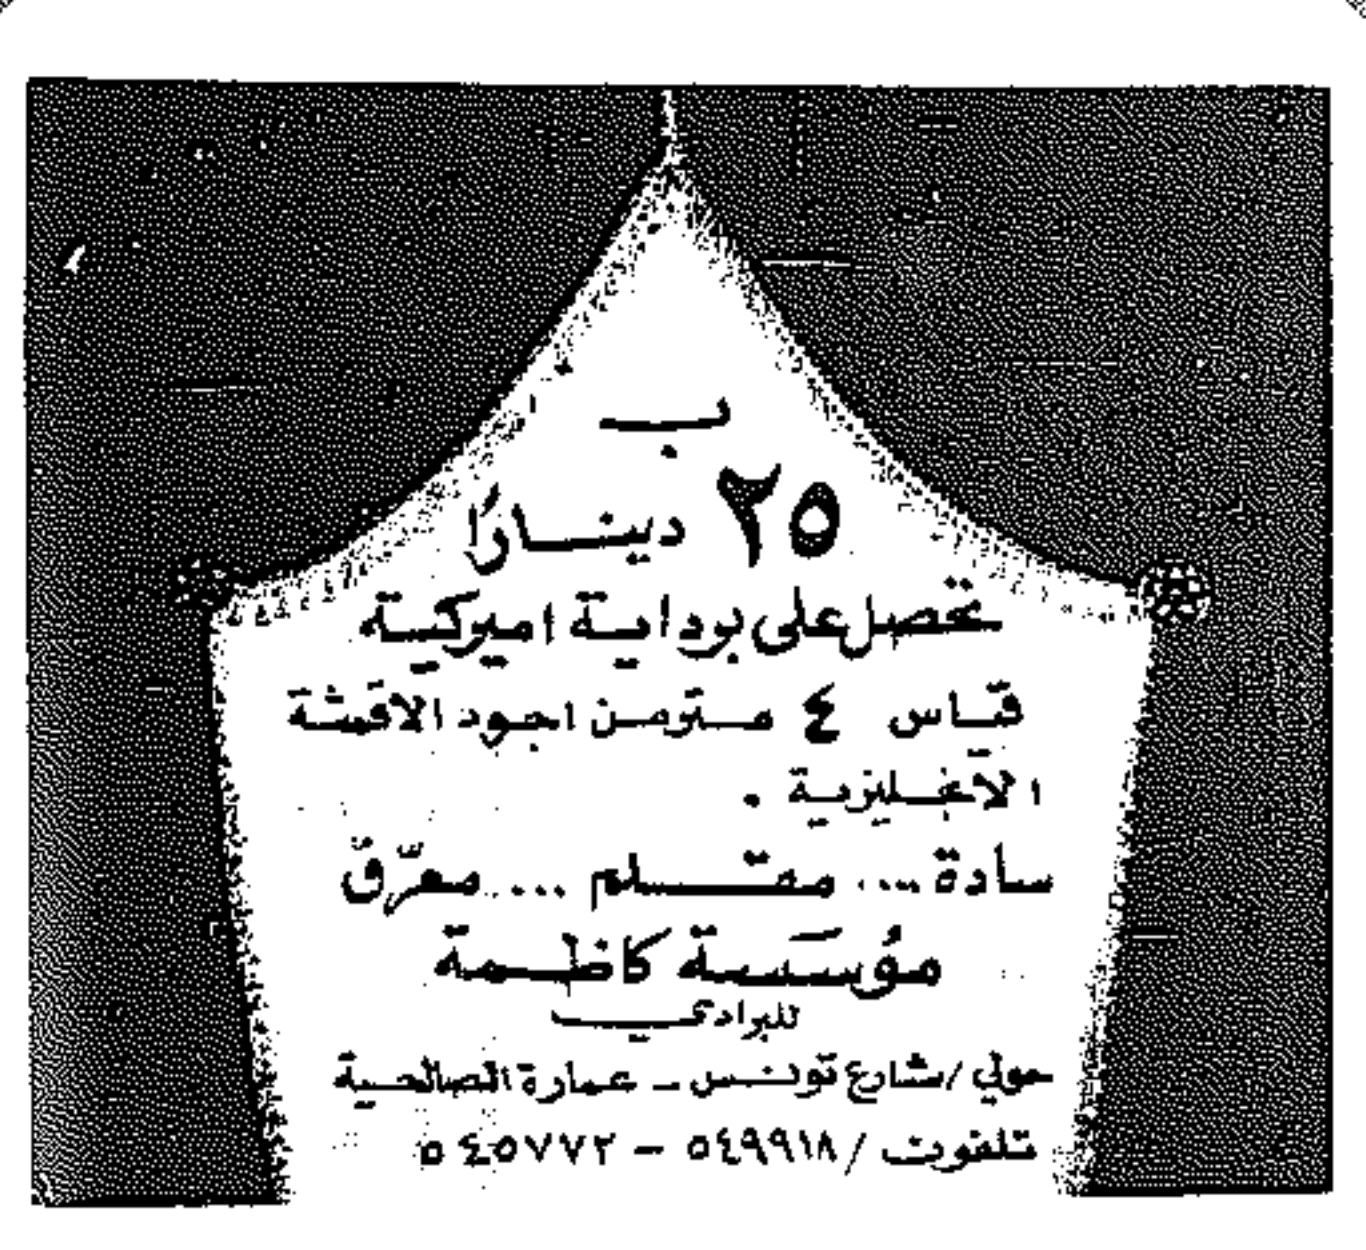 ب
٢٥ دينارًا
تحصل على بوداية اميركية
قياس ٤ متر من اجود الاقمشة
الانجليزية .
سادة ... مقلم ... معرّق
مؤسسة كاظمة
للبرادي
حولي / شارع تونس - عمارة الصالحية
تلفون / ٥٤٩٩١٨ - ٥٤٥٧٧٢